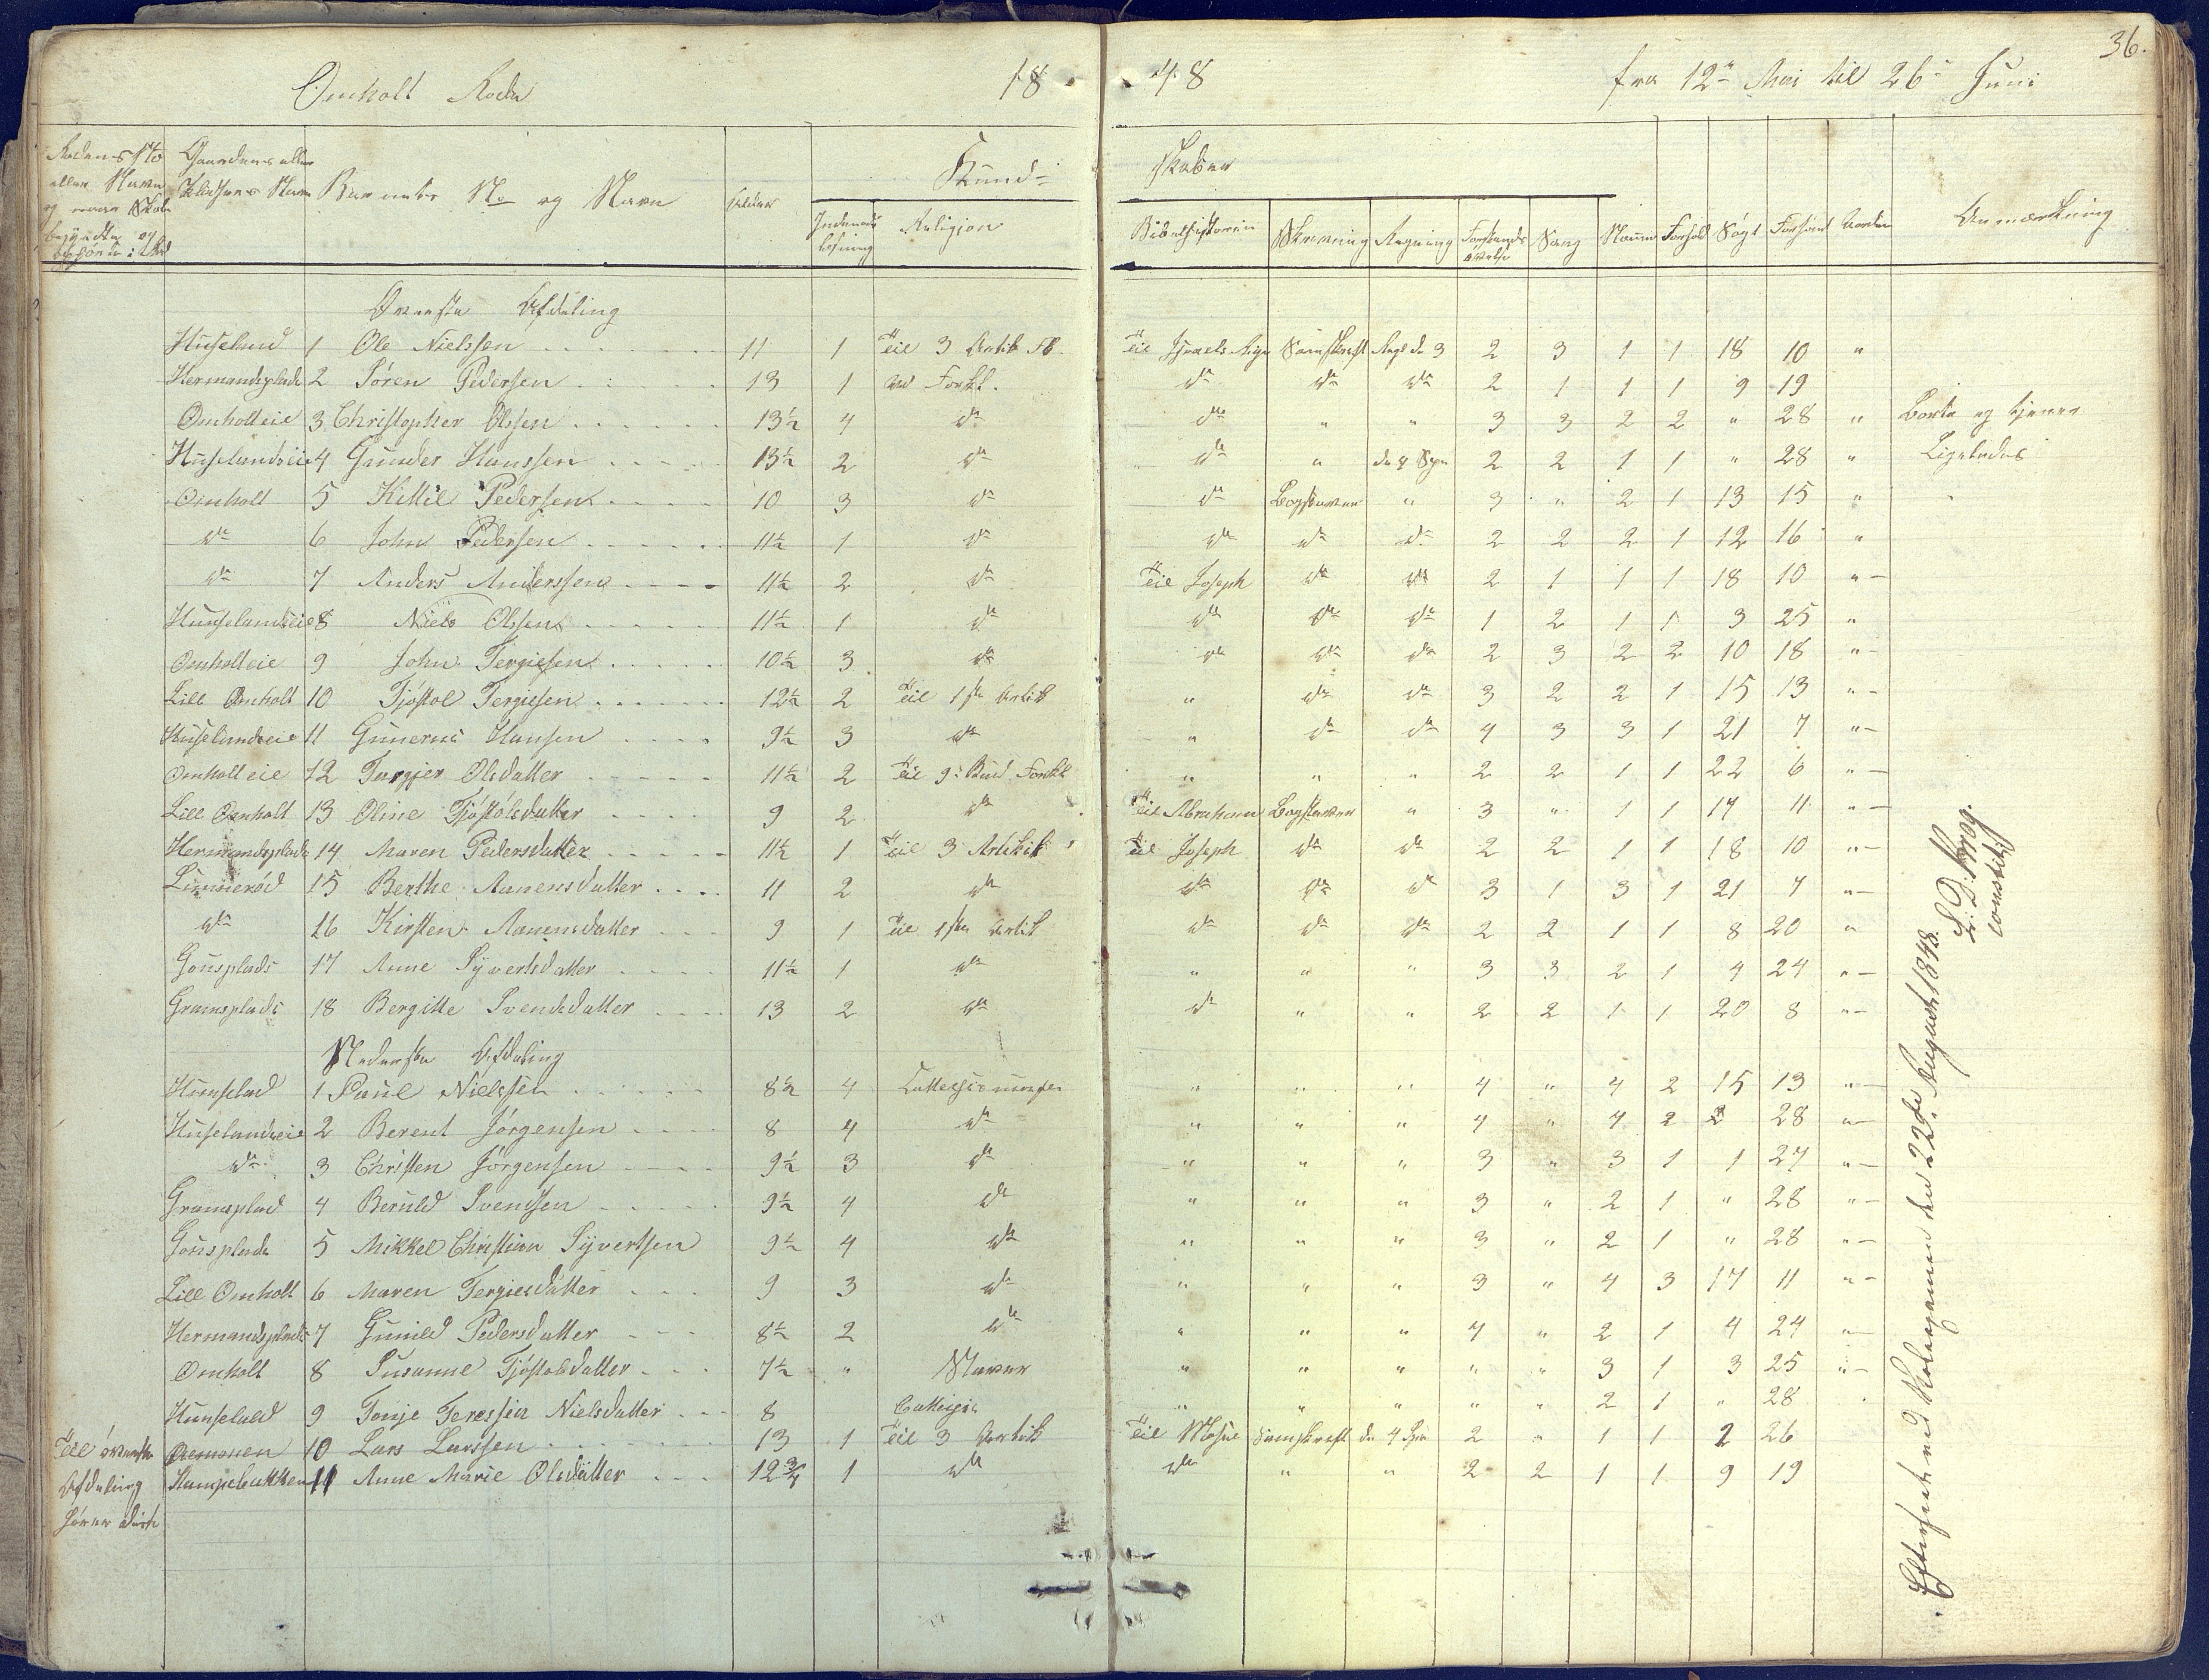 36.
Omholt Rode 1848 fra 12te Mai til 26de Juni
Rodens No eller Navn og naar Skolen begyndte og ophörte i den
Gaardens eller Pladsens Navn
Barnets No og Navn
Alder
Kundskaber
Indenadslæsning
Religion
Bibelhistorien
Skrivning
Regning
Forstandsøvelse
Sang
Nemme
Forhold
Sögt
Forsömt
Anmærkning
Øverste Afdeling
Huselund 1 Ole Nielssen 11 1 Til 3 Artik Fk. Til Israels Rige Samskrift Regl de 3 2 3 1 1 18 10 "
Hermandsplads 2 Sören Pedersen 13 1 ud Forkl. do do do 2 1 1 1 9 19
Omholteie 3 Christopher Olssen 13½ 4 do do " " 3 3 2 2 " 28 " Borte og tjener
Huselundseie 4 Gunder Hanssen 13½ 2 do do " de 4 Spe 2 2 1 1 " 28 " Ligeledes
Omholt 5 Kittil Pedersen 10 3 do do Bogstaver " 3 " 2 1 13 15 "
do 6 John Pedersen 11½ 1 do do do do 2 2 2 1 12 16 "
do 7 Anders Anderssen 11½ 2 do Til Joseph do do 2 1 1 1 18 10 "
Hunselundseie 8 Niels Olsen 11½ 1 do do do do 1 2 1 1 3 25 "
Omholteie 9 John Tergiesen 10½ 3 do do do do 2 3 2 2 10 18 "
Lill Omholt 10 Tjöstol Tergiesen 12½ 2 Til 1ste Artik " do do 3 2 2 1 15 13 "
Huselundseie 11 Gunerus Hansen 9½ 3 do " do do 4 3 3 1 21 7 "
Omholteie 12 Torgjer Olsdatter 11½ 2 Til 9de Bud Forkl " " " 2 2 1 1 22 6 "
Lill Omholt 13 Oline Tjöstolsdatter 9 2 do Til Abraham Bogstaver " 3 " 1 1 17 11 "
Hermandsplads 14 Maren Pedersdatter 11½ 1 Til 3 Artikl Til Joseph do do 2 2 1 1 18 10 "
Limmeröd 15 Berthe Aanensdatter 11 2 do do do do 3 1 3 1 21 7 "
do 16 Kirsten Aanensdatter 9 1 Til 1ste Artik do do do 2 2 1 1 8 20 "
Gonsplads 17 Anne Syvertsdatter 11½ 1 do " " " 3 3 2 1 4 24 "
Gramsplads 18 Bergitte Svendsdatter 13 2 do do " " 2 2 1 1 20 8 "
Nederste Afdeling
Hunselud 1 Paul Nielssen 8½ 4 " " " 4 " 4 2 15 13 "
Huselundseie 2 Berent Jörgensen 8 4 do " " " 4 " 4 2 28 "
do 3 Christen Jörgensen 9½ 3 do " " " 3 " 3 1 1 27 "
Gramsplad 4 Beruld Svendsen 9½ 4 do " " " 3 " 2 1 " 28 "
Gonsplads 5 Mikkel Christian Syvertsen 9½ 4 do " " " 3 " 2 1 " 28 "
Lill Omholt 6 Maren Tergiesdatter 9 3 do " " " 3 " 4 3 17 11 "
Hermandsplads 7 Gunild Pedersdatter 8½ 2 do " " " 4 " 2 1 4 24 "
Omholt 8 Susanne Tjöstolsdatter 7½ " Staver " " " " " 3 1 3 25 "
Hunselud 9 Tonje Teressia Nielsdatter 8 " " " " " 2 1 " 28
10 Lars Larssen 13 1 Til 3 Artik Til Mosis Samskrift de 4 Spe 2 " 1 1 2 26
Hampebakken 11 Anne Marie Olsdatter 12¾ 1 do do " " 2 2 1 1 9 19
Til överste Afdeling hörer disse
Efterseet ved den 22de August 1848.
L: D: Krog.
constit: